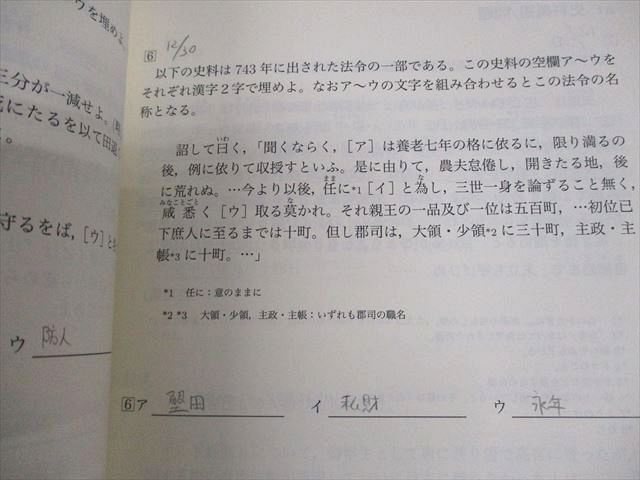 ウを埋めよ。
三分が一減せよ。
にたるを以て田
守るをば,［ウ］と
ウ 防人
6 12/30
以下の史料は 743 年に出された法令の一部である。この史料の空欄ア～ウを
それぞれ漢字 2 字で埋めよ。なおア～ウの文字を組み合わせるとこの法令の名
称となる。
詔して曰く,「聞くならく,［ア］は養老七年の格に依るに, 限り満るの
後, 例に依りて収授すといふ。是に由りて, 農夫怠倦し, 開きたる地, 後
に荒れぬ。…今より以後, 任に*1［イ］と為し, 三世一身を論ずること無く,
咸悉く［ウ］取る莫かれ。それ親王の一品及び一位は五百町, …初位已
下庶人に至るまでは十町。但し郡司は, 大領・少領*2 に三十町, 主政・主
帳*3 に十町。…」
*1 任に：意のままに
*2 *3 大領・少領, 主政・主帳：いずれも郡司の職名
6 ア 墾田 イ 私財 ウ 永年